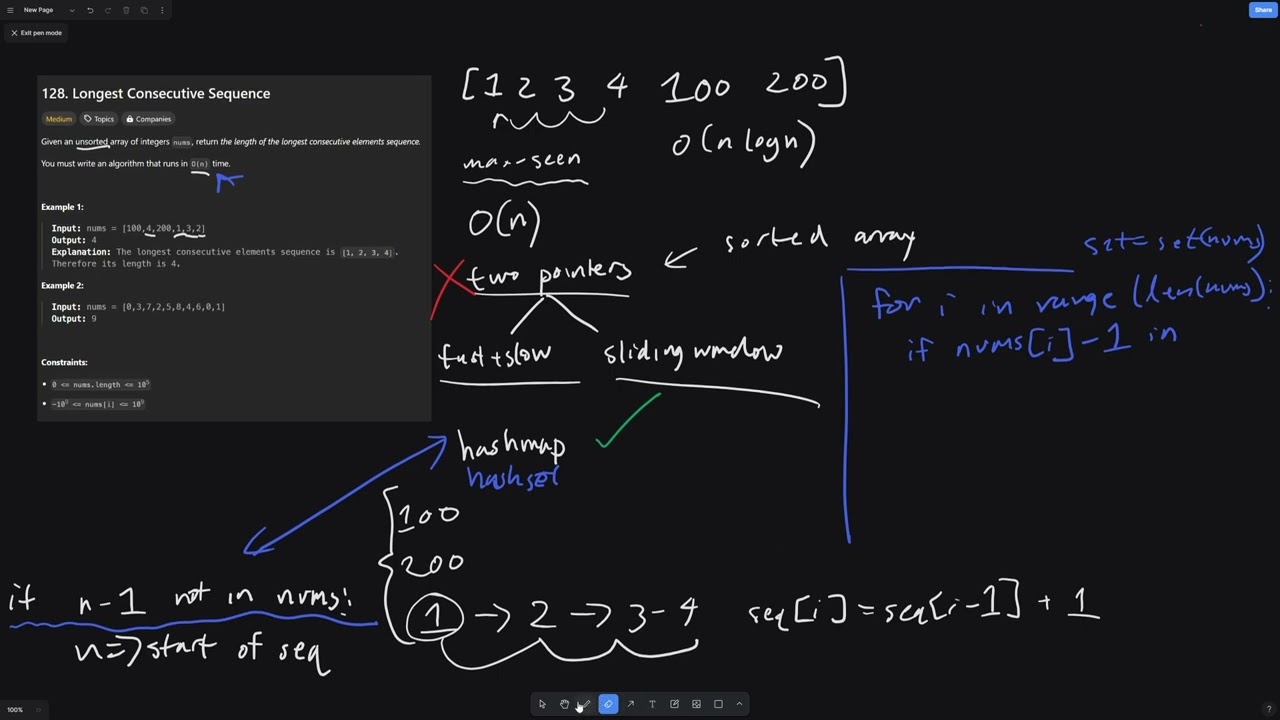 New Page
Share
Exit pen mode
128. Longest Consecutive Sequence
Medium Topics Companies
Given an unsorted array of integers nums, return the length of the longest consecutive elements sequence.
You must write an algorithm that runs in O(n) time.
Example 1:
Input: nums = [100,4,200,1,3,2]
Output: 4
Explanation: The longest consecutive elements sequence is [1, 2, 3, 4].
Therefore its length is 4.
Example 2:
Input: nums = [0,3,7,2,5,8,4,6,0,1]
Output: 9
Constraints:
0 <= nums.length <= 10⁵
-10⁹ <= nums[i] <= 10⁹
[1 2 3 4 100 200]
O(n logn)
max-seen
O(n)
two pointers
sorted array
fast+slow
sliding window
hashmap
hashset
set = set(nums)
for i in range (len(nums):
if nums[i]-1 in
100
200
1 → 2 → 3 - 4
seq[i] = seq[i-1] + 1
if n-1 not in nums:
n => start of seq
100%
T
?